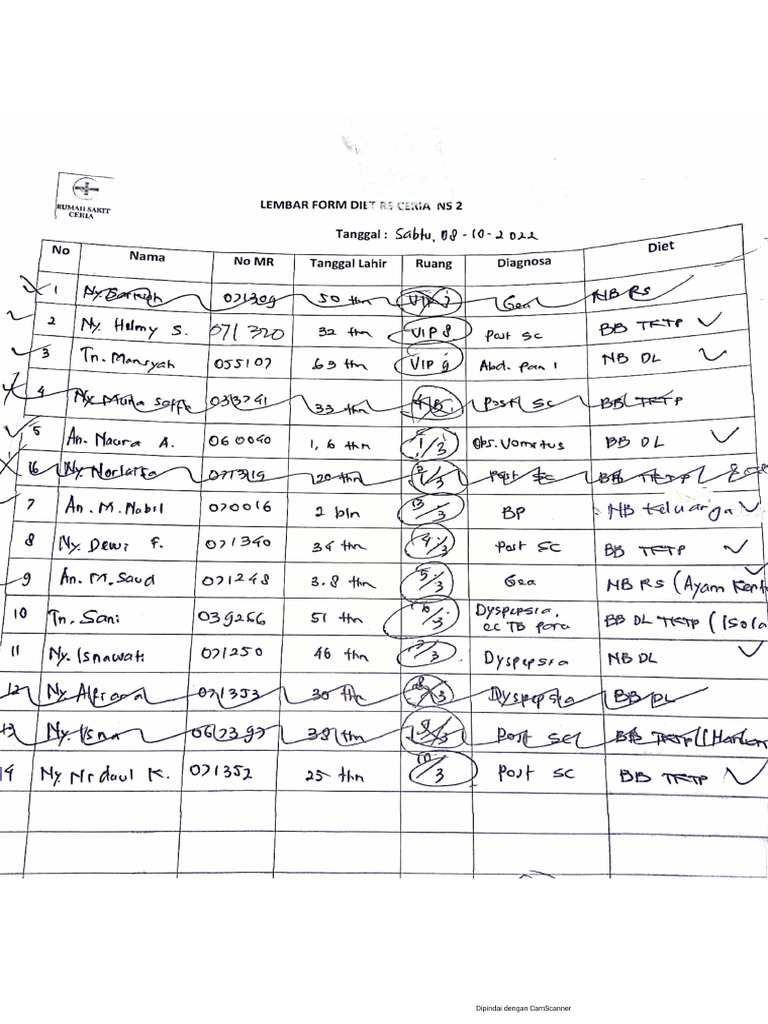 RUMAH SAKIT
CERIA
LEMBAR FORM DIET RS CERIA NS 2
Tanggal : Sabtu, 08-10-2022
No Nama No MR Tanggal Lahir Ruang Diagnosa Diet
1 Ny. 071309 50 thn VIP Gea NB RS
2 Ny. Helmy S. 071320 32 thn VIP 8 post SC BB TKTP
3 Tn. Mansyah 055107 63 thn VIP 9 Abd. pain NB DL
4 Ny. 33 thn Post SC BB TKTP
5 An. Naura A. 060040 1,6 thn 1/3 Obs. Vomitus BB DL
6 Ny. 20 thn /3 BB TKTP
7 An. M. Nabil 070016 2 bln /3 BP NB Keluarga
8 Ny. Dewi F. 071340 34 thn 4/3 Post SC BB TKTP
9 An. M. Saud 071248 3.8 thn 5/3 Gea NB RS (Ayam
10 Tn. Sani 51 thn 6/3 Dyspepsia,
ec TB paru BB DL TKTP (Isola
11 Ny. Isnawati 071250 46 thn 7/3 Dyspepsia NB DL
12 Ny. 071353 30 thn /3 Dyspepsia BB DL
13 Ny. Isna 38 thn /3 Post SC BB TKTP
14 Ny. K. 071352 25 thn 10/3 Post SC BB TKTP
Dipindai dengan CamScanner